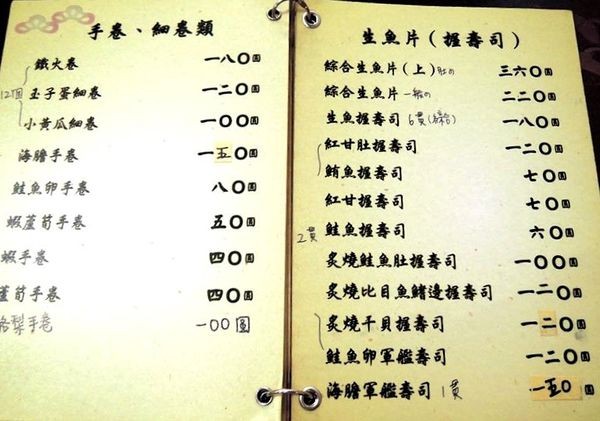 手卷、細卷類
鐵火卷 一八〇圓
12個 玉子蛋細卷 一二〇圓
小黃瓜細卷 一〇〇圓
海膽手卷 一五〇圓
鮭魚卵手卷 八〇圓
蝦蘆筍手卷 五〇圓
蝦手卷 四〇圓
蘆筍手卷 四〇圓
手卷 一〇〇圓
生魚片(握壽司)
綜合生魚片(上)肚の 三六〇圓
綜合生魚片 一般の 二二〇圓
生魚握壽司 6貫(綜合) 一八〇圓
紅甘肚握壽司 一二〇圓
鮪魚握壽司 七〇圓
紅甘握壽司 七〇圓
2貫 鮭魚握壽司 六〇圓
炙燒鮭魚肚握壽司 一〇〇圓
炙燒比目魚鰭邊握壽司 一二〇圓
炙燒干貝握壽司 一二〇圓
鮭魚卵軍艦壽司 一二〇圓
海膽軍艦壽司 1貫 一五〇圓